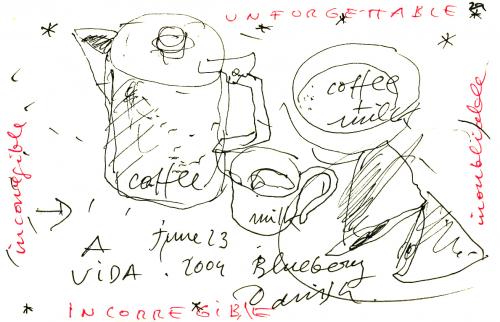 UNFORGETTABLE
coffee
milk
coffee
milk
incorregible
inoubliable
A June 23
VIDA . 2004 Blueberry
Danish
INCORREGIBLE